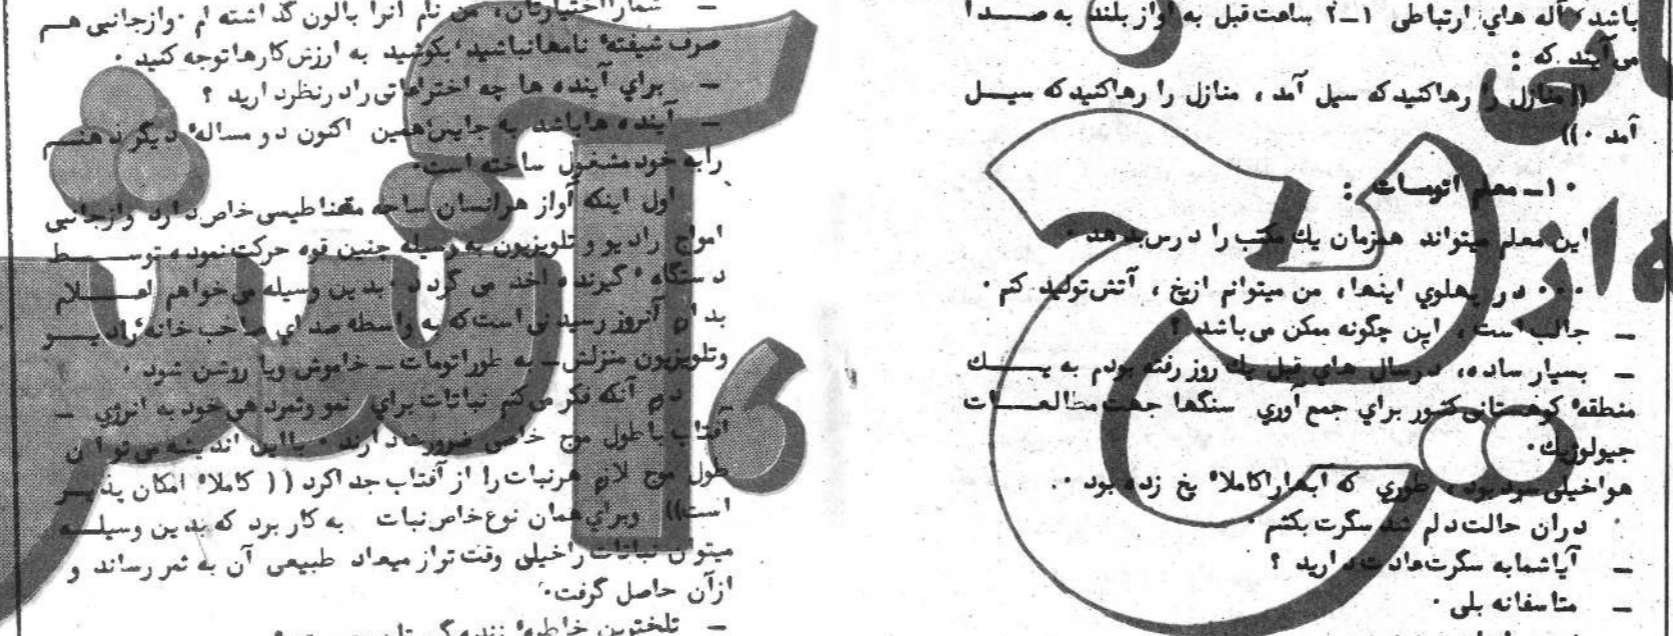 باشد آله هاي ارتباطی ۱ــ۲ ساعت قبل به آواز بلند به صدا
می آیند که :
((منازل را رهاکنید که سیل آمد ، منازل را رهاکنید که سیل
آمد ۰))
۱۰ــ معلم اتومات :
این معلم میتواند همزمان یك مکتب را درس بدهد ۰
۰۰۰ در پهلوي اینها، من میتوانم ازیخ ، آتش تولید کنم ۰
ــ جالب است ، این چگونه ممکن می باشد ؟
ــ بسیار ساده، درسال هاي قبل یك روز رفته بودم به یك
منطقهٔ کوهستانی کشور براي جمع آوري سنگها جهت مطالعات
جیولوژیك ۰
هواخیلی سرد بود ، طوري که آبها راکاملاً یخ زده بود ۰
دران حالت دلم شد سگرت بکشم ۰
ــ آیاشمابه سگرت عادت دارید ؟
ــ متاسفانه بلی ۰
ــ شمارا اختیارتان، من نام آنرا بالون گذاشته ام ۰ وازجانبی هم
صرف شیفتهٔ نامها نباشید، بکوشید به ارزش کارها توجه کنید ۰
ــ براي آینده ها چه اختراعاتی را درنظر دارید ؟
ــ آینده هاباشد به جایش همین اکنون دو مسالهٔ دیگر ذهنم
رابه خود مشغول ساخته است ۰
اول اینکه آواز هرانسان ساحه مقناطیسی خاص دارد وازجانبی
امواج رادیو و تلویزیون به وسیله چنین قوه حرکت نموده توسط
دستگاه گیرنده اخذ می گردد ۰ بدین وسیله می خواهم اعلام
بدارم آنروز رسیدنی است که به واسطه صداي صاحب خانه رادیو
وتلویزیون منزلش ــ به طور اتومات ــ خاموش ویا روشن شود ۰
دوم آنکه فکر می کنم نباتات براي نمو وثمردهی خود به انرژي
آفتاب باطول موج خاصی ضرورت دارند ۰ بااین اندیشه می توان
طول موج لازم هرنبات را از آفتاب جدا کرد (( کاملاً امکان پذیر
است)) وبراي همان نوع خاص نبات به کار برد که بدین وسیله
میتوان نباتات راخیلی وقت تراز میعاد طبیعی آن به ثمر رساند و
ازآن حاصل گرفت ۰
ــ تلخترین خاطرهٔ